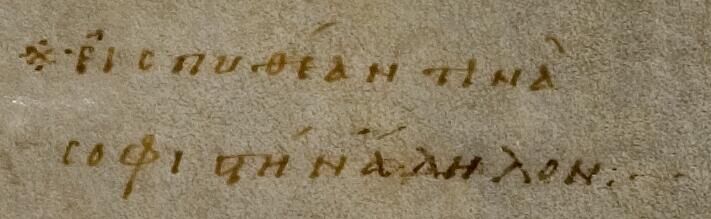 ※ εἰς πυθέαν τινὰ
σοφιστὴν ἄδηλον:—